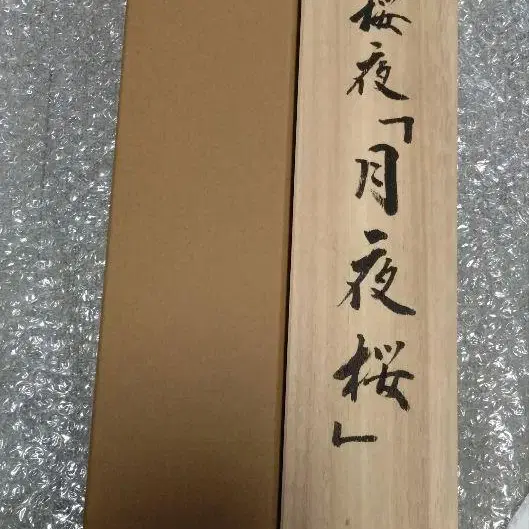 桜夜「月夜桜」